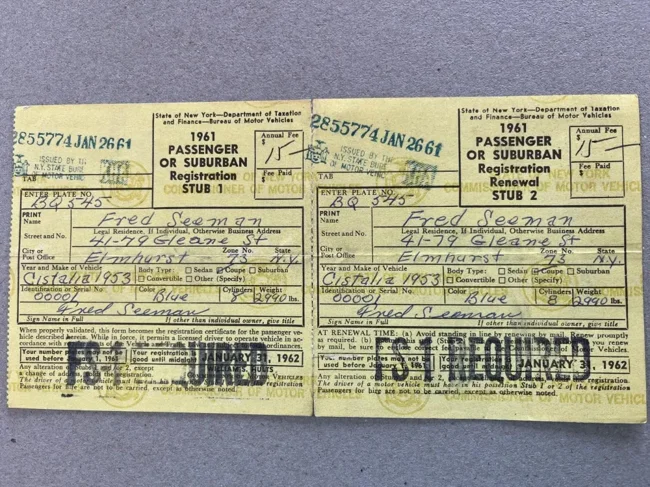 2855774 JAN 26 61
ISSUED BY THE
N.Y. STATE BURE
OF MOTOR VEHIC
TAB
State of New York—Department of Taxation
and Finance—Bureau of Motor Vehicles
1961
PASSENGER
OR SUBURBAN
Registration
STUB 1
Annual Fee
$ 15
Fee Paid
$
ENTER PLATE NO.
BQ 545
PRINT
Name
Fred Seeman
Legal Residence, If Individual, Otherwise Business Address
Street and No.
41-79 Gleane St
Zone No. State
City or
Post Office
Elmhurst 73 N.Y.
Year and Make of Vehicle
Body Type: Sedan Coupe Suburban
Cistalia 1953
Convertible Other (Specify)
Identification or Serial No. Color Cylinders Weight
00001 Blue 8 2990 lbs.
Fred Seeman
Sign Name in Full If other than individual owner, give title
When properly validated, this form becomes the registration certificate for the passenger ve-
hicle described above. While in force, it permits a licensed driver to operate vehicle in ac-
cordance with
Your number
used before
Your registration
good until midnight JANUARY 31, 1962
FS-1 REQUIRED
Any alteration of Stubs 1 and 2, except
a change of
WILLIAM S. HULTS,
The driver of a motor vehicle must
Passengers for hire are not to be carried, except as otherwise noted.
2855774 JAN 26 61
ISSUED BY TH
N.Y. STATE BURE
OF MOTOR VEHIC
TAB
State of New York—Department of Taxation
and Finance—Bureau of Motor Vehicles
1961
PASSENGER
OR SUBURBAN
Registration
Renewal
STUB 2
Annual Fee
$ 15
Fee Paid
$
ENTER PLATE NO.
BQ 545
COMMISSIONER OF MOTOR VEHICLES
PRINT
Name
Fred Seeman
Legal Residence, If Individual, Otherwise Business Address
Street and No.
41-79 Gleane St
Zone No. State
City or
Post Office
Elmhurst 73 N.Y.
Year and Make of Vehicle
Body Type: Sedan Coupe Suburban
Cistalia 1953
Convertible Other (Specify)
Identification or Serial No. Color Cylinders Weight
00001 Blue 8 2990 lbs.
Fred Seeman
Sign Name in Full If other than individual owner, give title
AT RENEWAL TIME: (a) Avoid standing in line by renewing by mail. Renew promptly
as required. (b)
by mail, be sure to
Your number plates may not be
used before Jan. 1, 1961
Your registration
good until midnight JANUARY 31, 1962
FS-1 REQUIRED
Any alteration of Stubs 1 and 2
The driver of a motor vehicle must have in his possession Stub 1 or 2 of the registration.
Passengers for hire are not to be carried, except as otherwise noted.